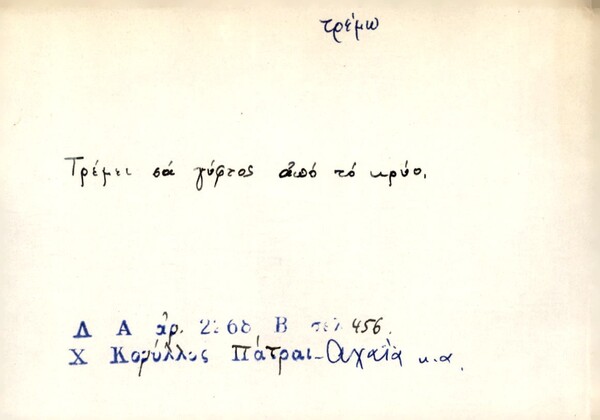 τρέμω
Τρέμει σά γύφτος ἀπό τό κρύο.
Λ Α ἀρ. 2268, Β σελ 456.
Χ Κορύλλος Πάτραι-Αχαΐα κ.α.